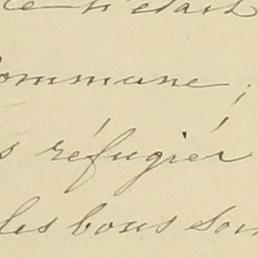 n'était
commune ;
s réfugiés
les bons soin